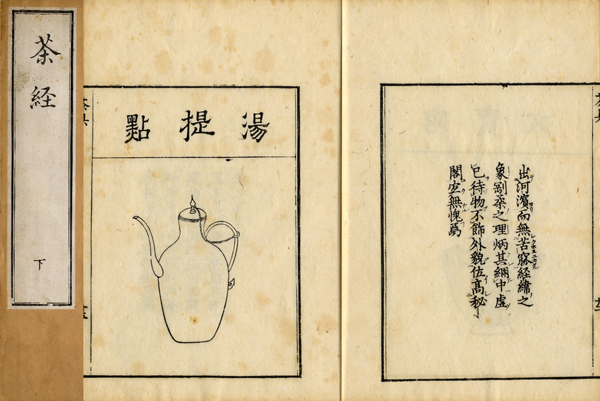 茶経
下
湯提點
出河濱而無苦窳經緯之
象剛柔之理炳其綳中虚
已待物不飾外貌位高秘
閣宜無愧焉